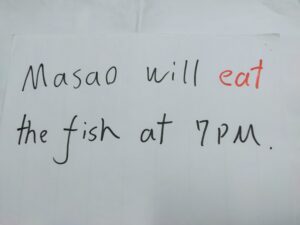 Masao will eat
the fish at 7PM.